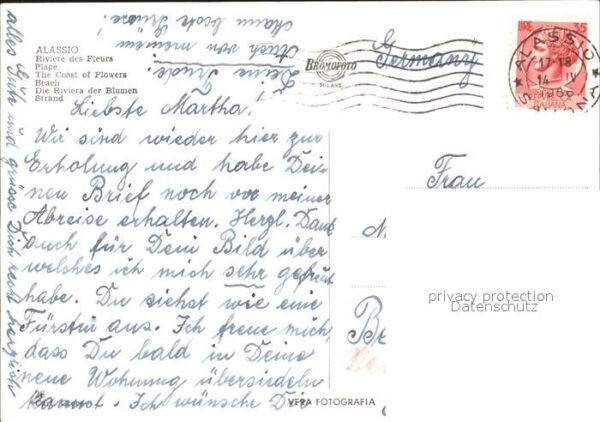 ALASSIO
Riviere des Fleurs
Plage
The Coast of Flowers
Beach
Die Riviera der Blumen
Strand
Liebste Martha!
Wir sind wieder hier zur
Erholung und habe Dei-
nen Brief noch vor meiner
Abreise erhalten. Herzl. Dank
auch für Dein Bild über
welches ich mich sehr gefreut
habe. Du siehst wie eine
Fürstin aus. Ich freue mich,
dass Du bald in Deine
neue Wohnung übersiedeln
kannst. Ich wünsche Dir
alles Gute und grüsse Dich recht herzlich
Deine Trude.
Auch von meinem
Mann beste Grüsse!
BROMOFOTO
MILANO
Germany
LIRE 35
ITALIANA
ALASSIO
17-18
14 IV
Frau
M
Be
privacy protection
Datenschutz
VERA FOTOGRAFIA